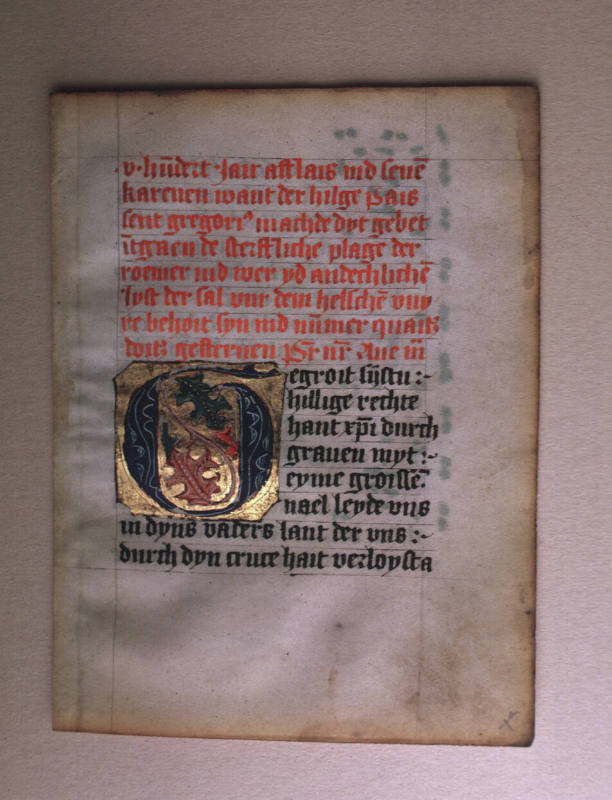 v. hūdert Jair afflais vnd seuē
karenen want der hilge Pais
sent gregori⁹ machde dyt gebet
ītgaen de steifliche plage der
roemer ind wer yd andechlichē
lyst der sal vur dem helschē vuy
re behoit syn ind nūmer quaitz
doitz gesteruen Pr̄ nr̄ Aue m̄
Gegroit sijstu :~
hillige rechte
hant xp̄i durch
grauen myt :~
eyme groissē
nael leyde vns
in dyns vaders lant der vns :~
durch dyn cruce hait verloysta